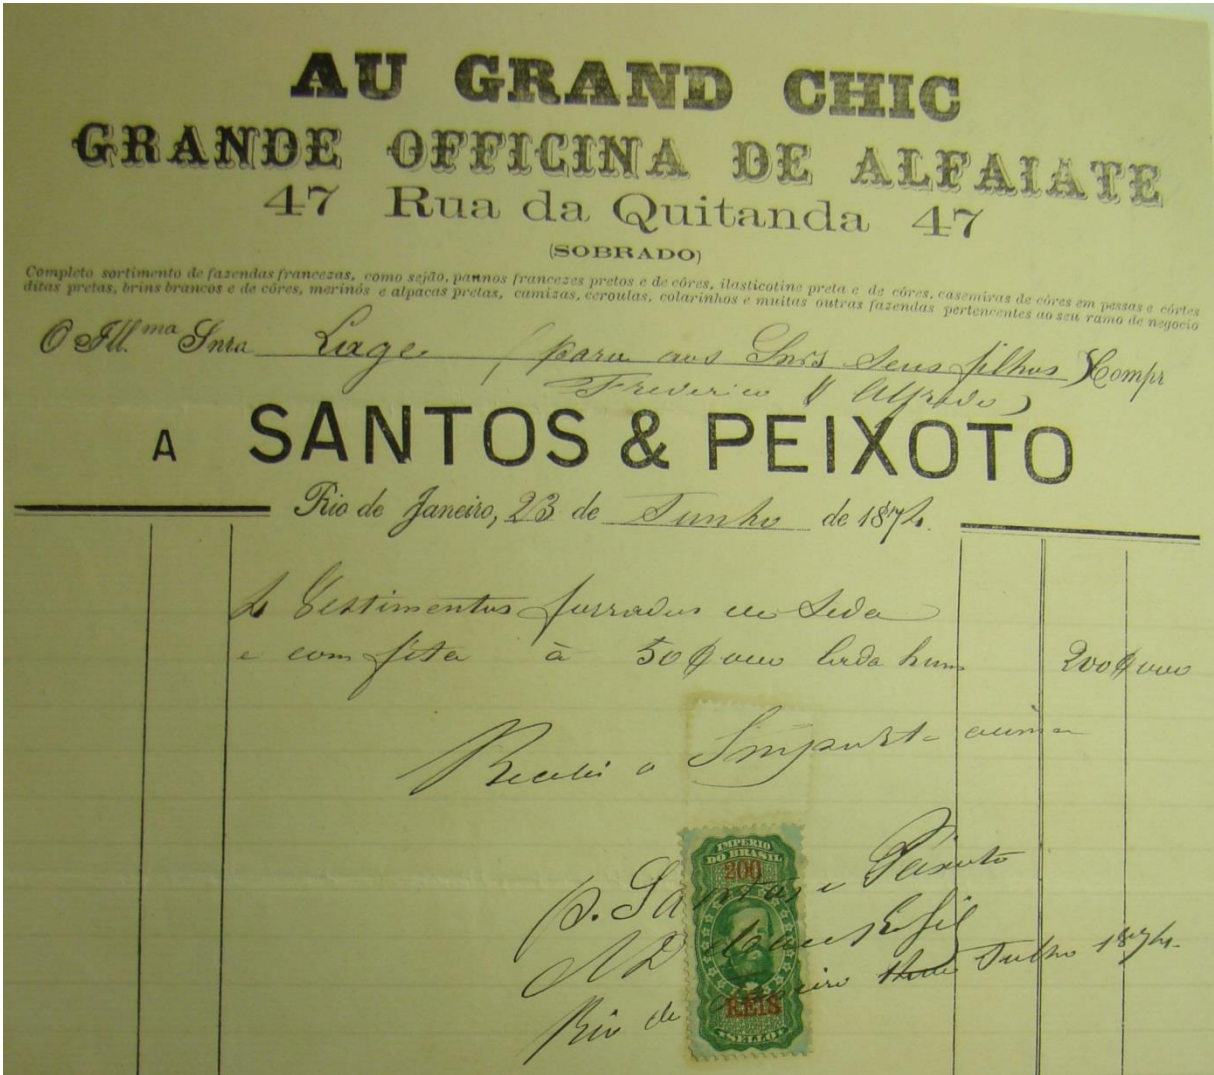 AU GRAND CHIC
GRANDE OFFICINA DE ALFAIATE
47 Rua da Quitanda 47
(SOBRADO)
Completo sortimento de fazendas francezas, como sejão, pannos francezes pretos e de côres, ilasticotine preta e de côres, casemiras de côres em pessas e córtes
ditas pretas, brins brancos e de côres, merinós e alpacas pretas, camizas, ceroulas, colarinhos e muitas outras fazendas pertencentes ao seu ramo de negocio
O Ill.ma Snra Lage (para aos Snrs seus filhos) Compr
Frederico Alfredo)
A SANTOS & PEIXOTO
Rio de Janeiro, 23 de Junho de 1874.
4 Vestimentos forrados em Seda
e com fita à 50$000 Cada hum 200$000
Recebi o Importe acima
IMPERIO
DO BRASIL
200
p. Santos e Peixoto
Rio de Julho 1874.
REIS
SELLO